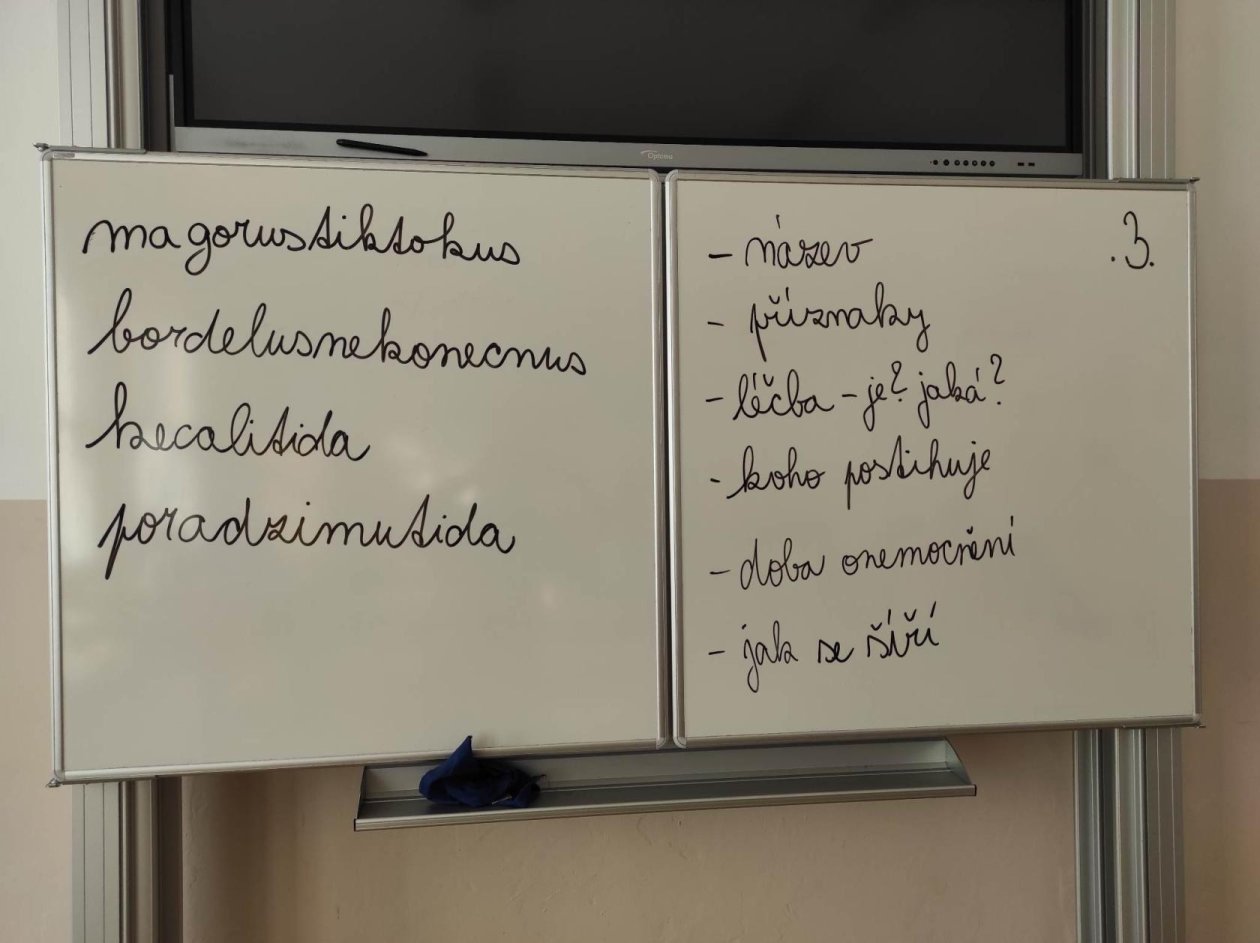 Optoma
magorustiktokus
bordelusnekonecnus
kecalitida
poradzimutida
.3.
- název
- příznaky
- léčba - je? jaká?
- koho postihuje
- doba onemocnění
- jak se šíří